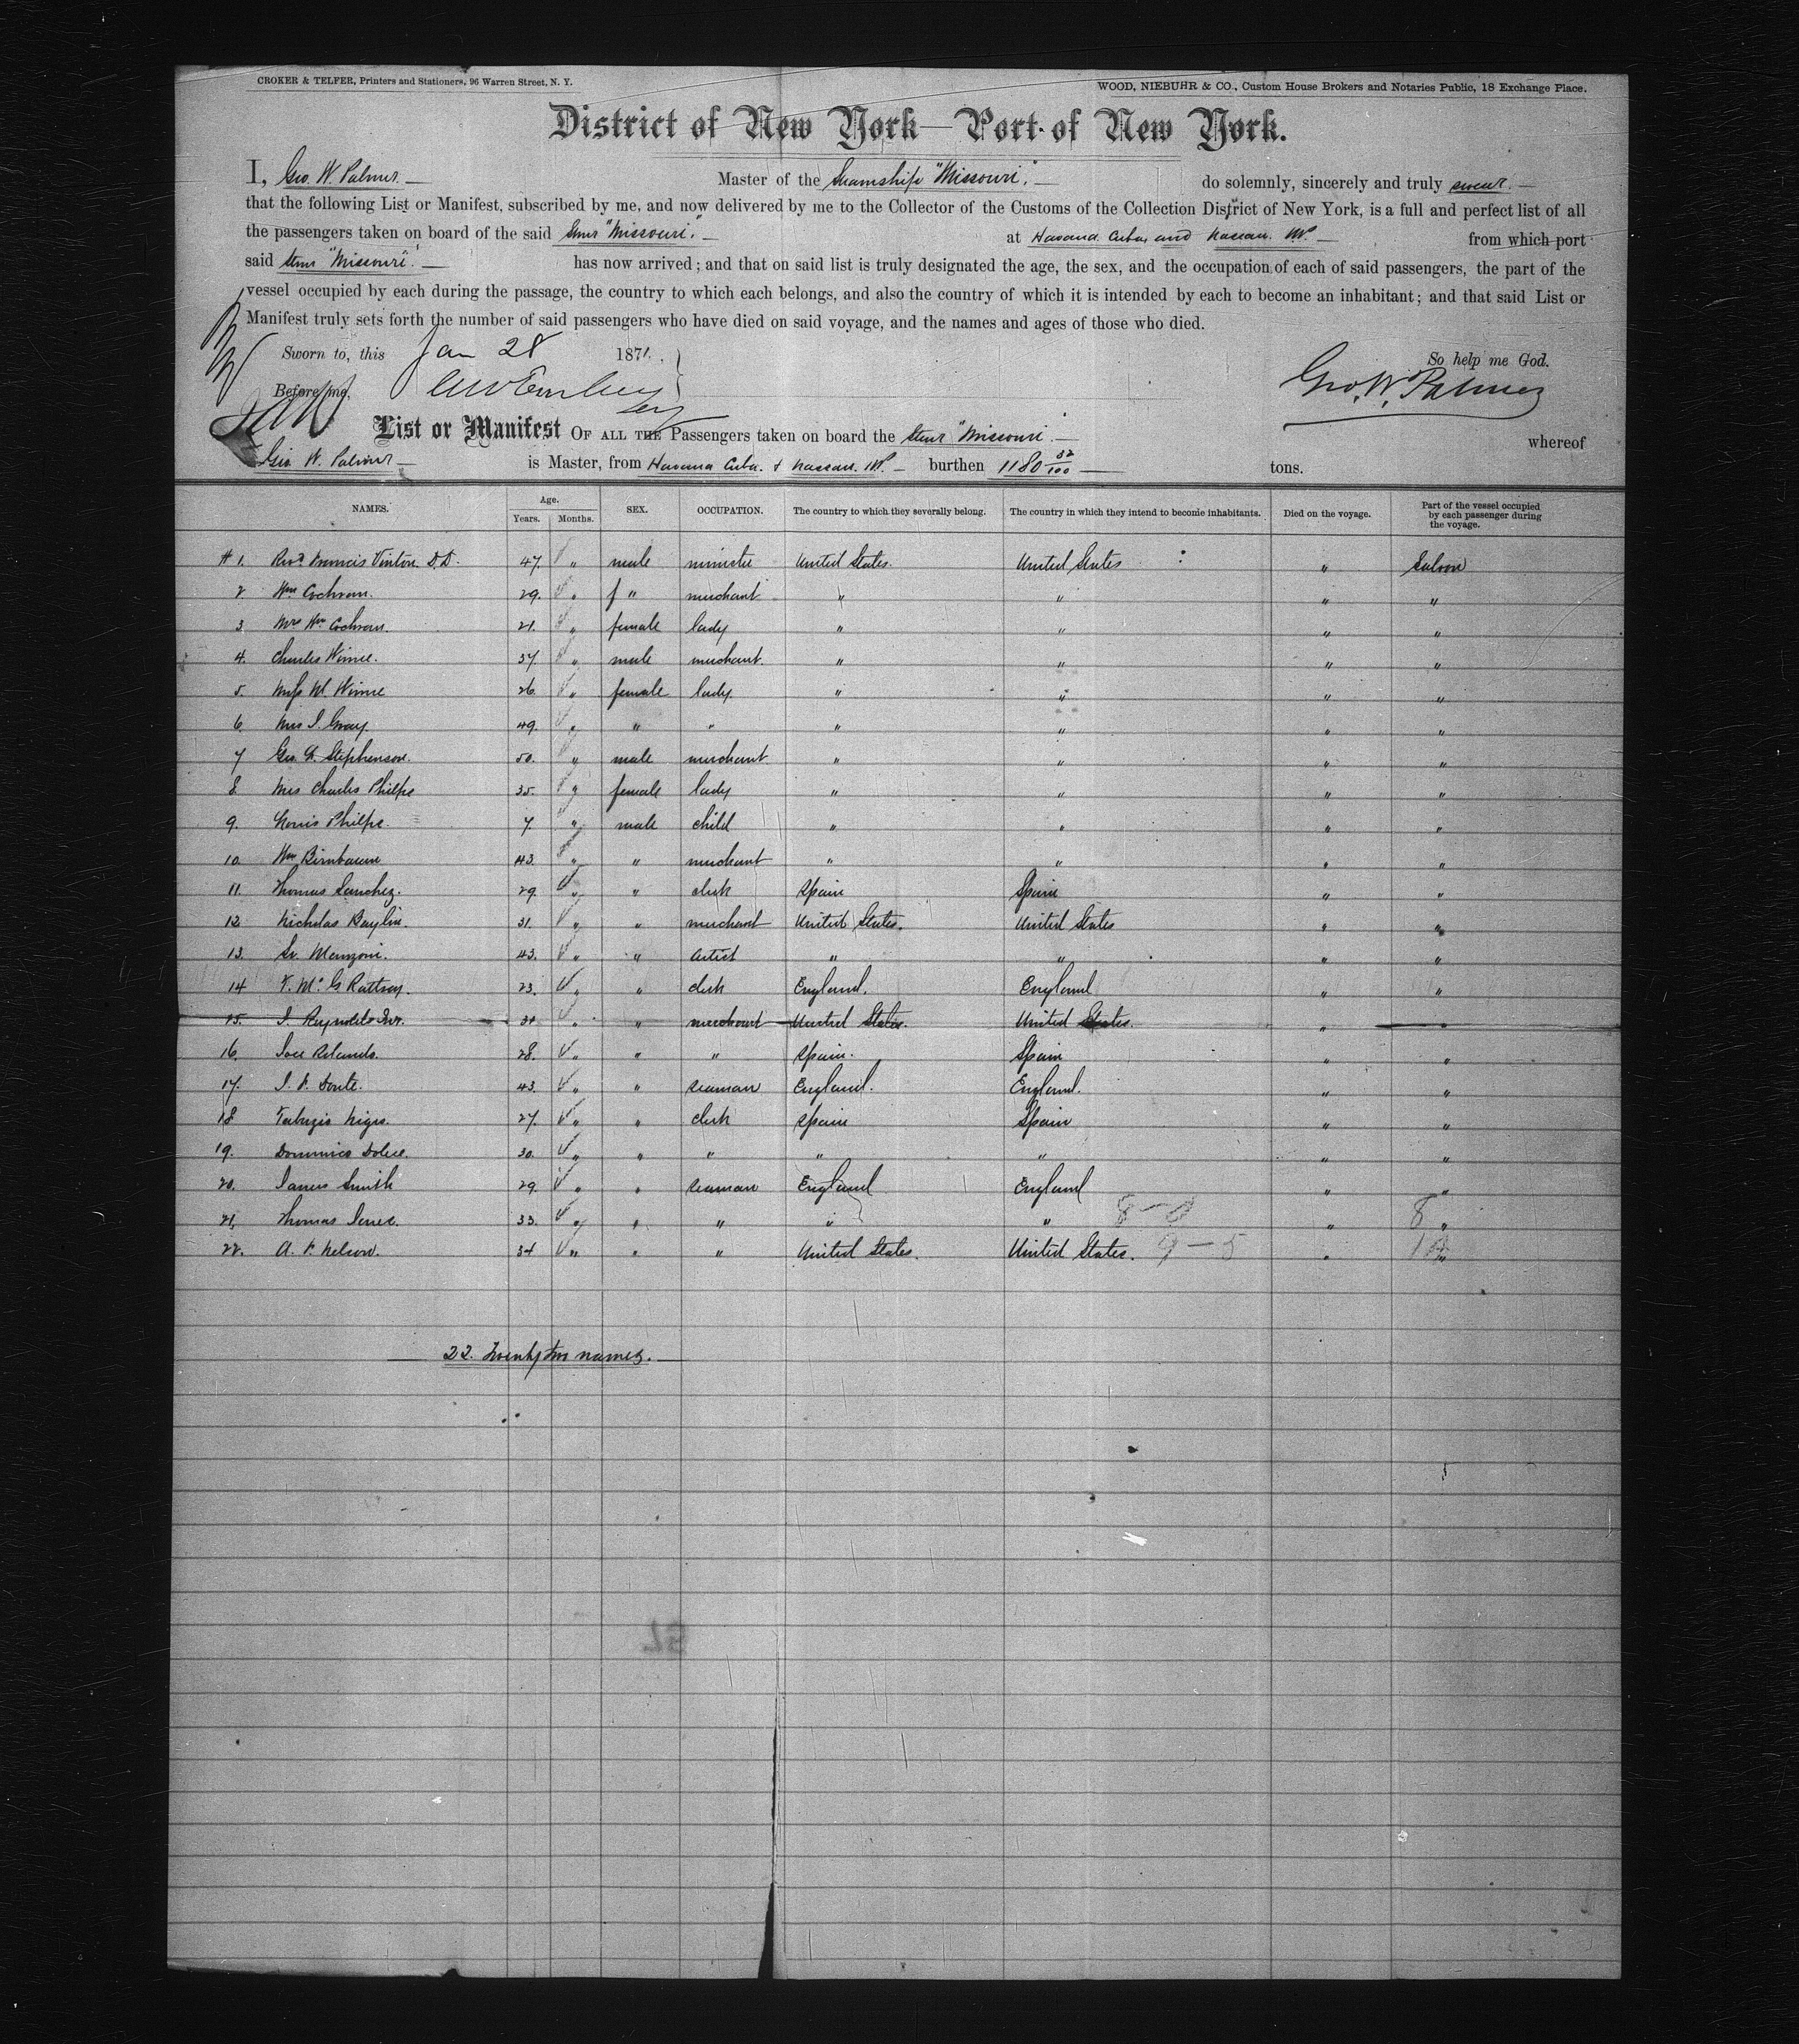 CROKER & TELFER, Printers and Stationers, 96 Warren Street, N. Y.
WOOD, NIEBUHR & CO., Custom House Brokers and Notaries Public, 18 Exchange Place.
District of New York—Port of New York.
I, Geo. W. Palmer. Master of the Steamship "Missouri". do solemnly, sincerely and truly swear.
that the following List or Manifest, subscribed by me, and now delivered by me to the Collector of the Customs of the Collection District of New York, is a full and perfect list of all
the passengers taken on board of the said Stmr "Missouri". at Havana Cuba, and Nassau. NP from which port
said Stmr "Missouri". has now arrived; and that on said list is truly designated the age, the sex, and the occupation of each of said passengers, the part of the
vessel occupied by each during the passage, the country to which each belongs, and also the country of which it is intended by each to become an inhabitant; and that said List or
Manifest truly sets forth the number of said passengers who have died on said voyage, and the names and ages of those who died.
Sworn to, this Jan 28 1871. So help me God.
Before me, Geo. W. Palmer
List or Manifest OF ALL THE Passengers taken on board the Stmr "Missouri". whereof
Geo. W. Palmer is Master, from Havana Cuba. & Nassau. NP. burthen 1180 32/100 tons.
NAMES. Age. Years. Months. SEX. OCCUPATION. The country to which they severally belong. The country in which they intend to become inhabitants. Died on the voyage. Part of the vessel occupied by each passenger during the voyage.
# 1. Revd Francis Vinton D.D. 47. " male minister United States. United States " Saloon
2 Wm Cochran. 29. " f " merchant " " " "
3 Mrs Wm Cochran. 21. " female lady " " " "
4. Charles Winne. 37 " male merchant. " " " "
5. Miss M. Winne 26. " female lady " " " "
6. Mrs I. Gray. 49. " " " " " " "
7 Geo. D. Stephenson. 50. " male merchant " " " "
8. Mrs Charles Philps 35. " female lady " " " "
9. Norris Philps. 7. " male child " " " "
10. Wm Birnbaum 43. " " merchant " " " "
11. Thomas Sanchez. 29. " " clerk Spain Spain " "
12 Nicholas Baylin. 31. " " merchant United States. United States " "
13. Sr. Manzoni. 43. " " artist " " " "
14 F. Mc G Rattray. 23. " " clerk England. England " "
15. J. Reynolds Jnr. 31 " " merchant United States. United States. " "
16. Jose 28. " " " Spain. Spain " "
17. J. F. 43. " " seaman England. England. " "
18 Nigro. 27. " " clerk Spain Spain " "
19. Dominico Dolce. 30. " " " " " " "
20. James Smith 29. " " seaman England England " "
21. Thomas 33. " " " " " 8-0 " 8 "
22. A. F. Nelson. 34 " " " United States. United States. 9-5 " "
22. Twenty two names.